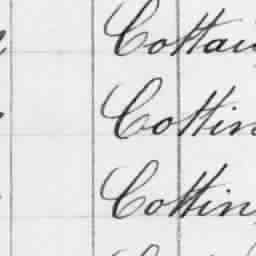 Cottai
Cottin
Cottin